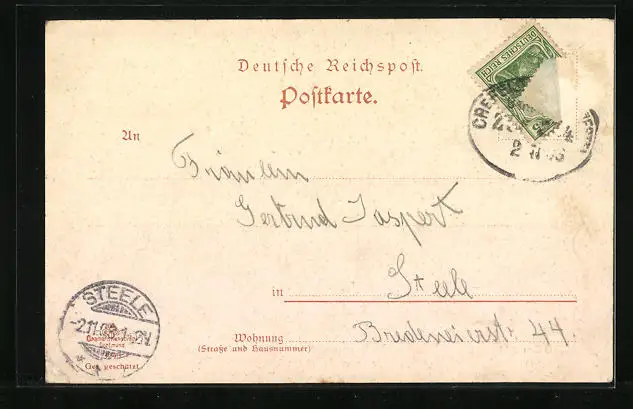 Deutsche Reichspost.
Postkarte.
DEUTSCHES REICH
CREFELD
2 11
An
Fräulein
Gertrud Jaspert
in Steele
Wohnung Bredeneierstr 44
(Straße und Hausnummer)
STEELE
-2.11.
Dortmund
Ges. geschützt